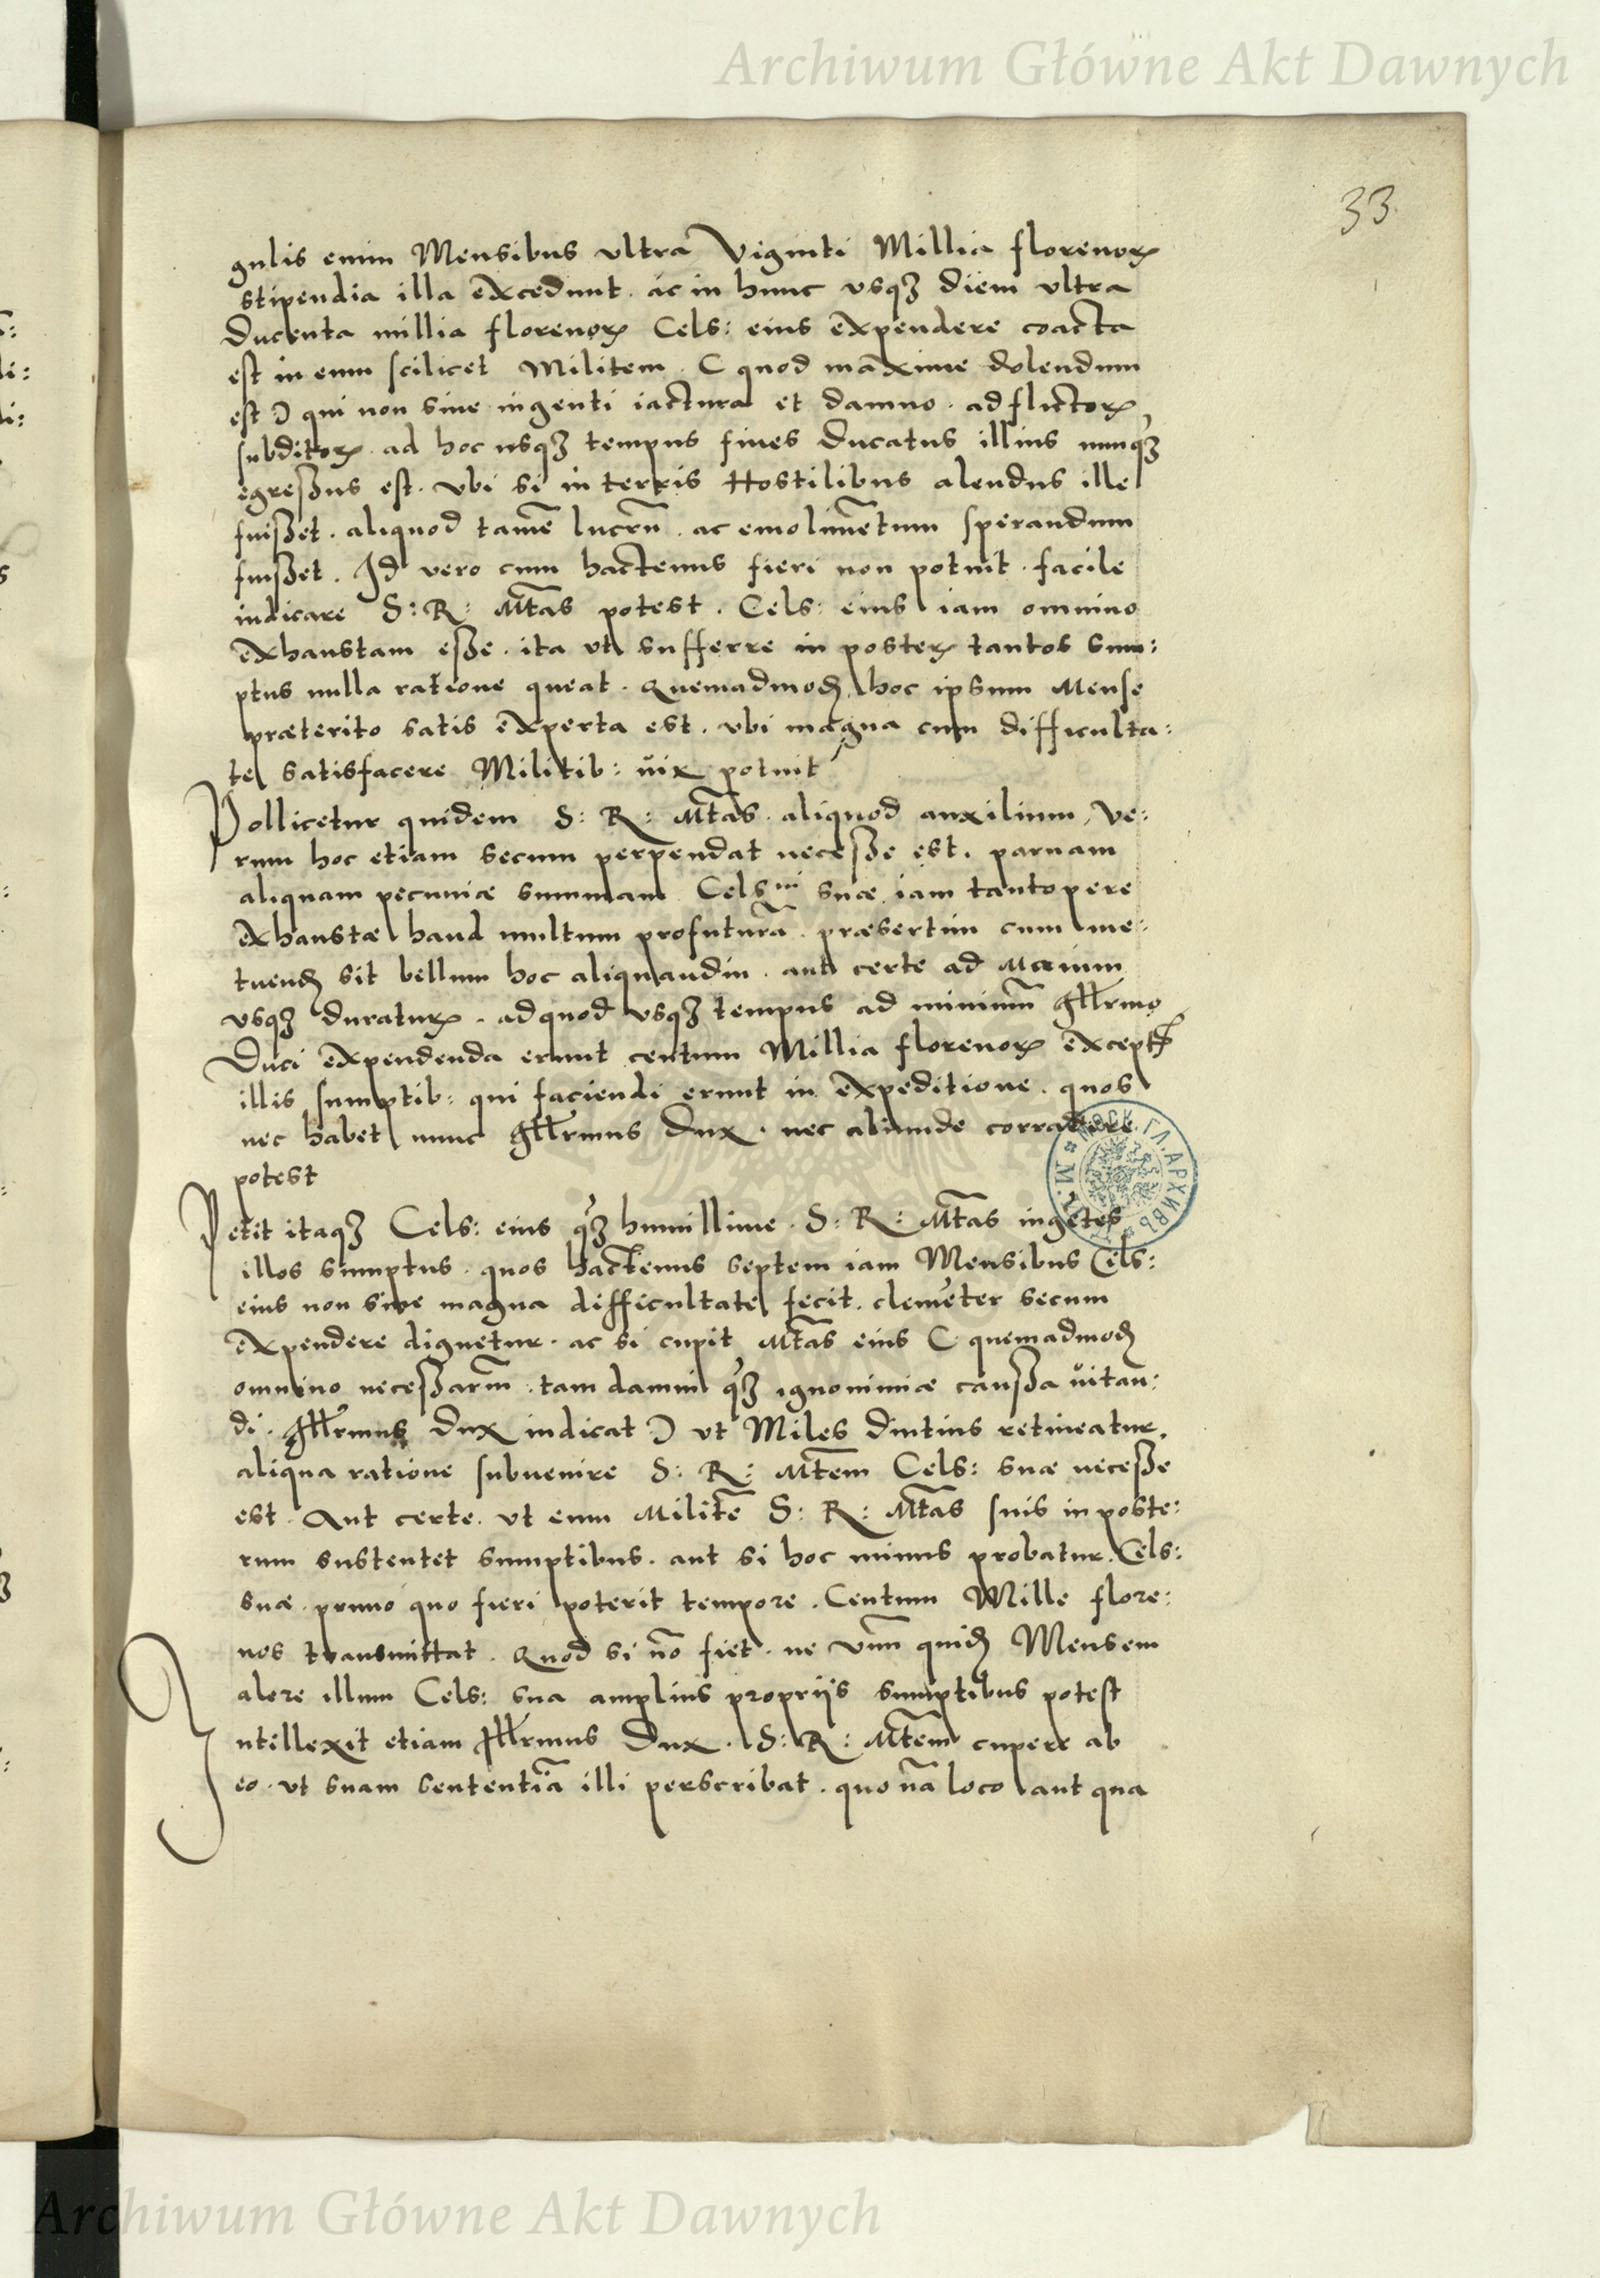 Archiwum Główne Akt Dawnych
33
gulis enim Mensibus ultra Viginti Millia florenoꝝ
stipendia illa excedunt. ac in hunc usqꝫ diem ultra
Ducenta millia florenoꝝ Cels: eius expendere coacta
est in eum scilicet Militem. ( quod maxime dolendum
est ) qui non sine ingenti iactura et damno. adflictoꝝ
subditoꝝ. ad hoc usqꝫ tempus fines Ducatus illius nunqꝫ
egressus est. Ubi si in terris Hostilibus alendus ille
fuisset. aliquod tamē lucrū. ac emolimētum sperandum
fuisset. Id vero cum hactenus fieri non potuit. facile
iudicare S: R: Mtas potest. Cels: eius iam omnino
exhaustam esse. ita ut sufferre in posteꝝ tantos sum:
ptus nulla ratione queat. Quemadmoꝺ hoc ipsum Mense
præterito satis experta est. ubi magna cum difficulta:
te satisfacere Militib: vix potuit
Pollicetur quidem S: R: Mtas. aliquod auxilium, Ve:
rum hoc etiam secum perpendat necesse est. parvam
aliquam pecuniæ summam Celsni suæ iam tantopere
exhaustæ haud multum profuturā. præsertim cum me:
tuenꝺ sit bellum hoc aliquandiu. aut certe ad Maium
usqꝫ duratuꝝ. ad quod usqꝫ tempus ad minimū Illrmo
Duci expendenda erunt centum Millia florenoꝝ except
illis sumptib: qui faciendi erunt in expeditione. quos
nec habet nunc Illrmus Dux. nec aliunde corradere
potest
Petit itaqꝫ Cels: eius qꝫ humillime. S: R: Mtas ingētes
illos sumptus. quos hactenus septem iam Mensibus Cels:
eius non sine magna difficultate fecit. clemēter secum
expendere dignetur. ac si cupit Mtas eius ( quemadmoꝺ
omnino necessariū. tam damni qꝫ ignominiæ caussa vitan:
di. Illrmus Dux iudicat ) ut Miles Diutius retineatur.
aliqua ratione subvenire S: R: Mtem Cels: suæ necesse
est. Aut certe. ut eum Militē S: R: Mtas suis in poste:
rum sustentet sumptibus. aut si hoc minus probatur. Cels:
suæ. primo quo fieri poterit tempore. Centum Mille flore:
nos transmittat. Quod si nō fiet. ne unū quiꝺ Mensem
alere illum Cels: sua amplius proprijs sumptibus potest
Intellexit etiam Illrmus Dux. S: R: Mtem cupere ab
eo. ut suam sententiā illi perscribat. quo nā loco aut qua
Archiwum Główne Akt Dawnych